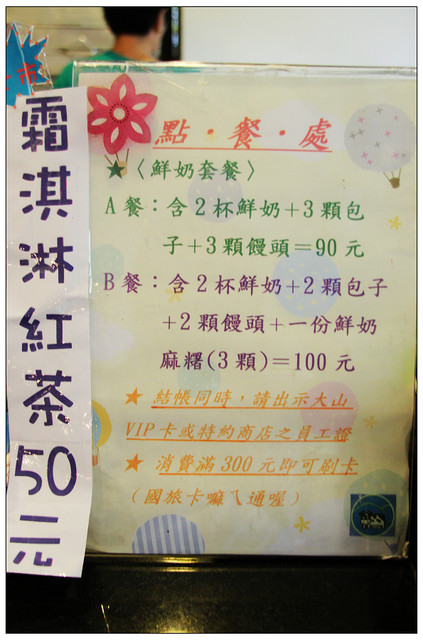 上市
霜淇淋紅茶50元
點·餐·處
★〈鮮奶套餐〉
A餐：含2杯鮮奶+3顆包
子+3顆饅頭=90元
B餐：含2杯鮮奶+2顆包子
+2顆饅頭+一份鮮奶
麻糬(3顆)=100元
★ 結帳同時，請出示大山
VIP卡或特約商店之員工證
★ 消費滿300元即可刷卡
（國旅卡嘛ㄟ通喔）